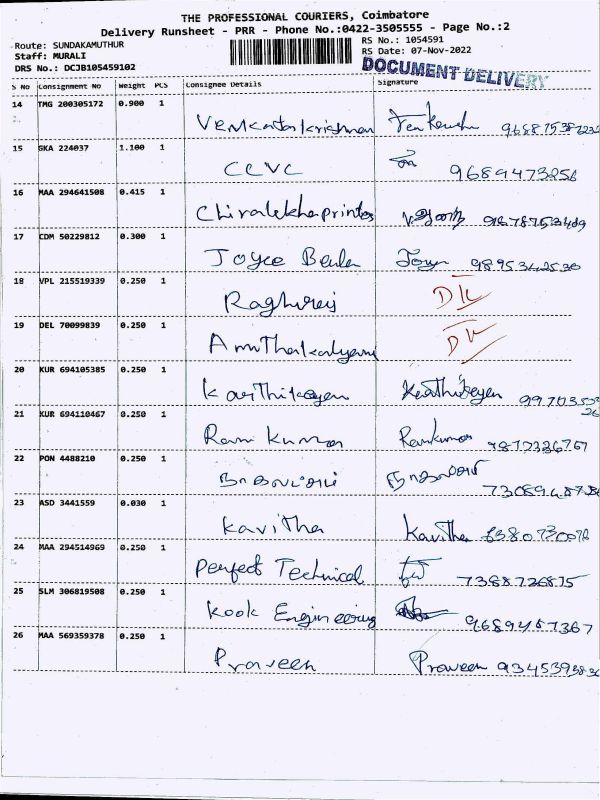 THE PROFESSIONAL COURIERS, Coimbatore
Delivery Runsheet - PRR - Phone No.:0422-3505555 - Page No.:2
Route: SUNDAKAMUTHUR RS No.: 1054591
Staff: MURALI RS Date: 07-Nov-2022
DRS No.: DCJB105459102 DOCUMENT DELIVERY
S No Consignment No Weight PCS Consignee Details Signature
14 TMG 200305172 0.900 1
Venkatakrishnan
15 SKA 224037 1.100 1
CCVC 9689473256
16 MAA 294641508 0.415 1
Chiralekhaprintos
17 CDM 50229812 0.300 1
Joyce Beula 9895342530
18 VPL 215519339 0.250 1
Raghuraj
19 DEL 70099839 0.250 1
Amuthakalyani
20 KUR 694105385 0.250 1
Karthikeyan Karthikeyen
21 KUR 694110467 0.250 1
Ram Kumar Ramkumar
22 PON 4488210 0.250 1
23 ASD 3441559 0.030 1
Kavitha Kavitha
24 MAA 294514969 0.250 1
Perfect Technical 7388726815
25 SLM 306819508 0.250 1
Kook Engineering
26 MAA 569359378 0.250 1
Praveen Praveen